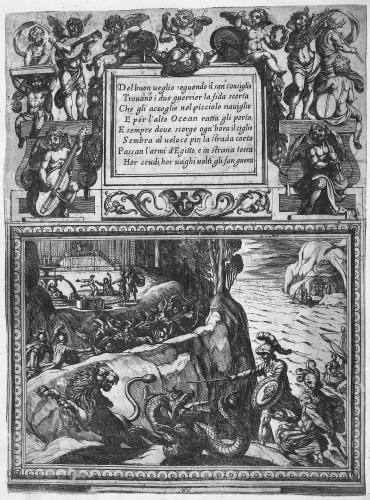 Del buon ueglio seguendo il san consiglio
Trouano i duo guerrier la fida scorta
Che gli accoglie nel picciolo nauiglio
E per l'alto Ocean ratta gli porta
E sempre doue scorge ogn'hora il ciglio
Sembra al ueloce pin la strada corta
Passan l'armi d'Egitto, e in strana terra
Hor crudi, hor uaghi uolti gli fan guerra
XV